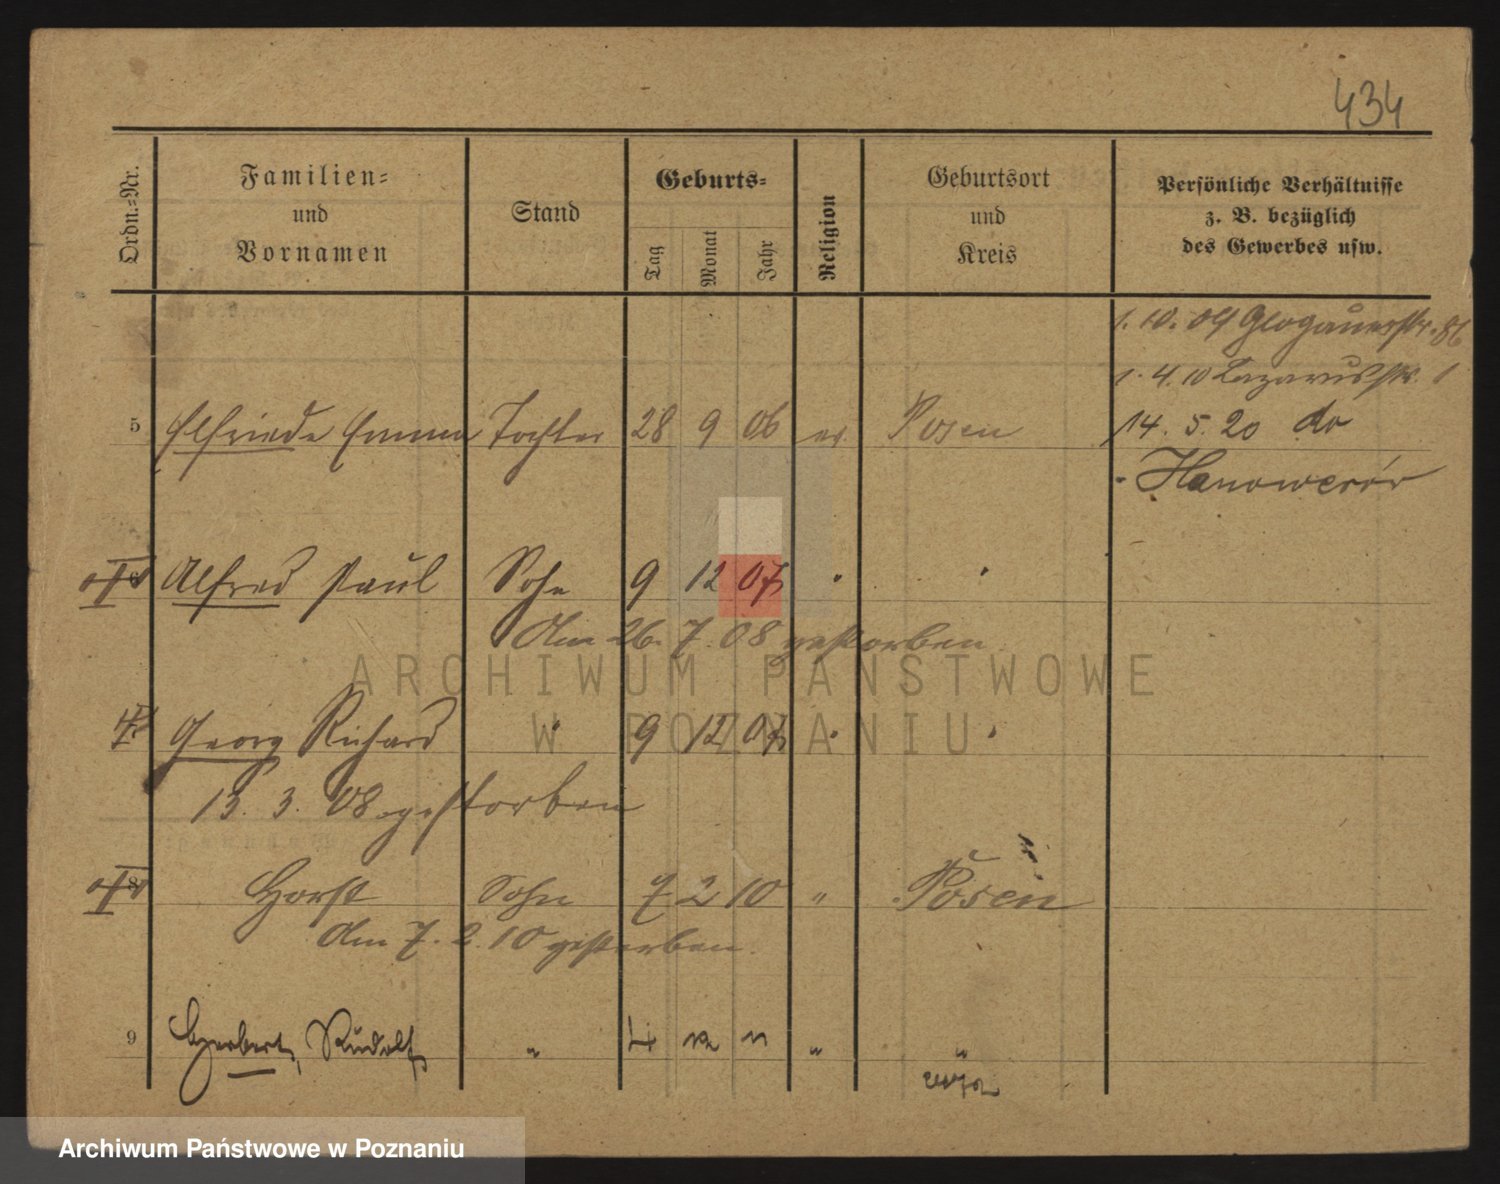 434
Ordn.-Nr.
Familien-
und
Vornamen
Stand
Geburts-
Tag
Monat
Jahr
Religion
Geburtsort
und
Kreis
Persönliche Verhältnisse
z. B. bezüglich
des Gewerbes usw.
1. 10. 09 Glogauerstr. 86
1. 4. 10 Lazarusstr. 1
5 Elfriede Emma Tochter 28 9 06 ev Posen 14. 5. 20 do
Hanowerór
6 Alfred Paul Sohn 9 12 07 " "
Am 26. 7. 08 gestorben
ARCHIWUM PAŃSTWOWE
W POZNANIU
7 Georg Richard " 9 12 07 " "
13. 3. 08 gestorben
8 Horst Sohn 7 2 10 " Posen
Am 7. 2. 10 gestorben.
9 Herbert, Rudolf " 4 12 11 " "
Archiwum Państwowe w Poznaniu